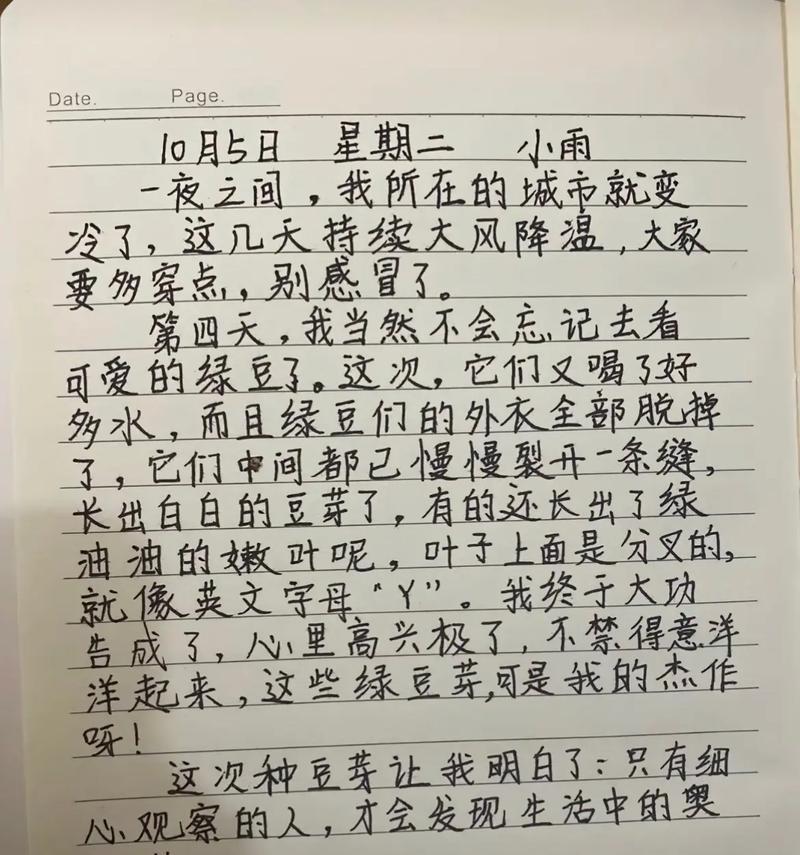 Date. Page.
10月5日 星期二 小雨
一夜之间，我所在的城市就变
冷了，这几天持续大风降温，大家
要多穿点，别感冒了。
第四天，我当然不会忘记去看
可爱的绿豆了。这次，它们又喝了好
多水，而且绿豆们的外衣全部脱掉
了，它们中间都已慢慢裂开一条缝，
长出白白的豆芽了，有的还长出了绿
油油的嫩叶呢，叶子上面是分叉的，
就像英文字母“Y”。我终于大功
告成了，心里高兴极了，不禁得意洋
洋起来，这些绿豆芽，可是我的杰作
呀！
这次种豆芽让我明白了：只有细
心观察的人，才会发现生活中的奥